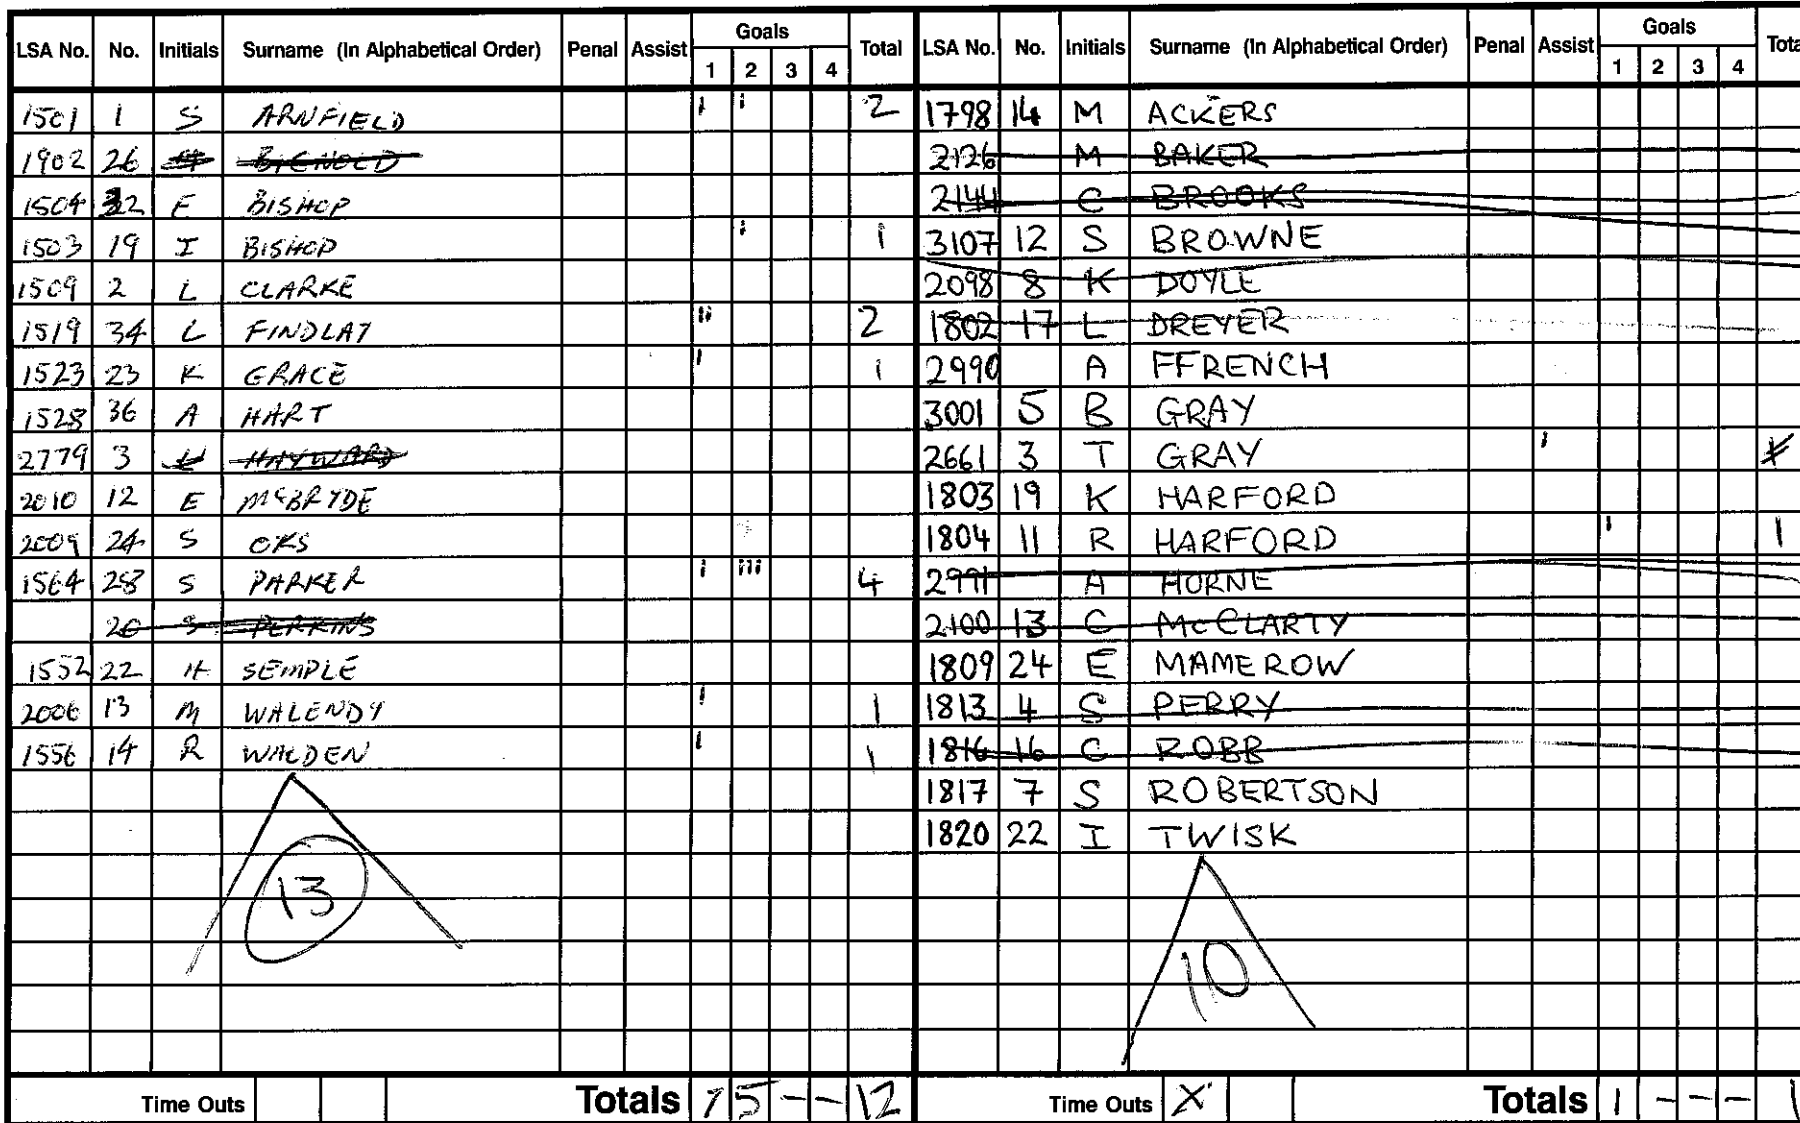 LSA No. No. Initials Surname (In Alphabetical Order) Penal Assist Goals 1 2 3 4 Total
1501 1 S ARNFIELD i i 2
1902 26 BIGNOLD
1504 32 E BISHOP
1503 19 I BISHOP i 1
1509 2 L CLARKE
1519 34 L FINDLAY ii 2
1523 23 K GRACE i 1
1528 36 A HART
2779 3 HAYWARD
2010 12 E McBRYDE
2009 24 S OKS
1564 28 S PARKER i iii 4
26 S PERKINS
1552 22 H SEMPLE
2006 13 M WALENDY i 1
1556 14 R WALDEN i 1
13
Time Outs Totals 7 5 - - 12
LSA No. No. Initials Surname (In Alphabetical Order) Penal Assist Goals 1 2 3 4 Tota
1798 14 M ACKERS
2126 M BAKER
2144 C BROOKS
3107 12 S BROWNE
2098 8 K DOYLE
1802 17 L DREYER
2990 A FFRENCH
3001 5 B GRAY
2661 3 T GRAY i
1803 19 K HARFORD
1804 11 R HARFORD i 1
2991 A HORNE
2100 13 C McCLARTY
1809 24 E MAMEROW
1813 4 S PERRY
1816 16 C ROBB
1817 7 S ROBERTSON
1820 22 I TWISK
10
Time Outs X Totals 1 - - - 1